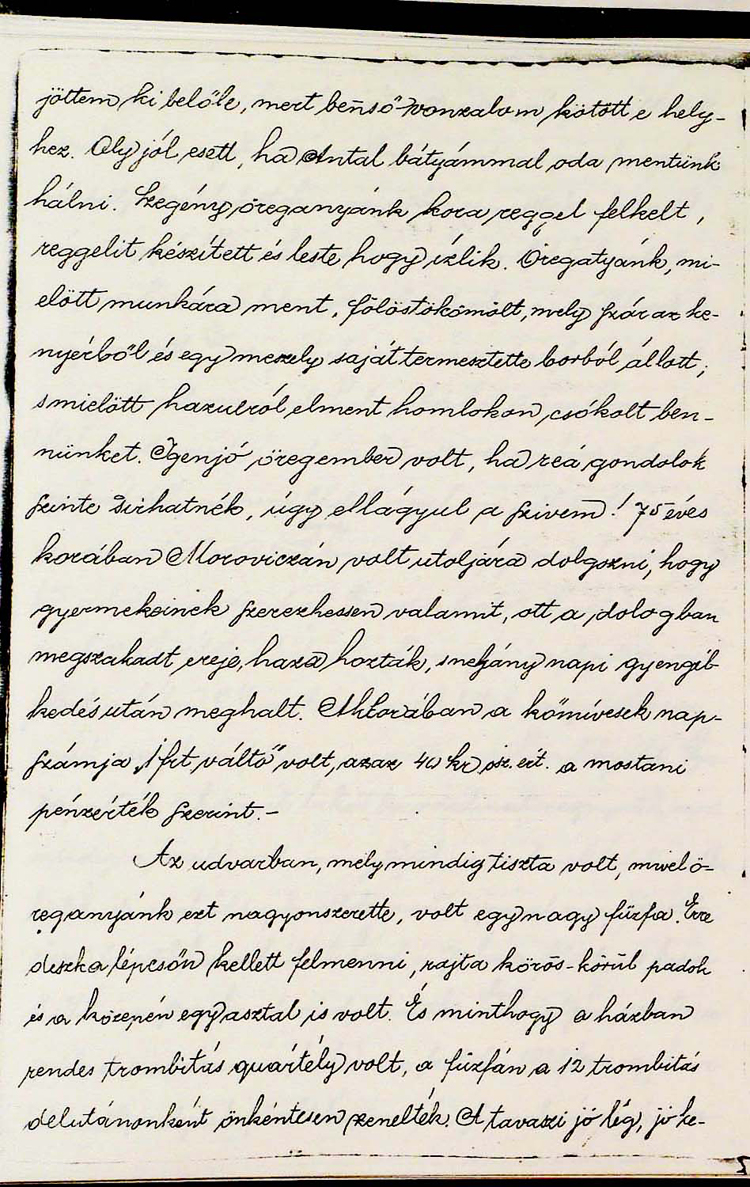 jöttem ki belőle, mert benső vonzalom kötött e hely-
hez. Oly jól esett, ha Antal bátyámmal oda mentünk
hálni. Szegény öreganyánk kora reggel felkelt,
reggelit készített és leste hogy ízlik. Öregatyánk, mi-
előtt munkára ment, fölöstökömölt, mely száraz ke-
nyérből és egy meszely saját termesztette borból állott;
s mielött hazulról elment homlokon csókolt ben-
nünket. Igen jó öregember volt, ha reá gondolok
szinte sirhatnék, úgy ellágyul a szivem! 75 éves
korában Moroviczán volt utoljára dolgozni, hogy
gyermekeinek szerezhessen valamit, ott a dologban
megszakadt ereje, haza hozták, s nehány napi gyengél-
kedés után meghalt. Akkorában a kőmívesek nap-
számja „1 frt váltó" volt, azaz 40 kr ősz. ért. a mostani
pénzérték szerint.-
Az udvarban, mely mindig tiszta volt, mivel ö-
reganyánk ezt nagyon szerette, volt egy nagy fűzfa. Erre
deszka lépcsőn kellett felmenni, rajta körös-körül padok
és a közepén egy asztal is volt. És minthogy a házban
rendes trombitás quártély volt, a fűzfán a 12 trombitás
délutánonként önkéntesen zenélték. A tavaszi jó lég, jó ke-